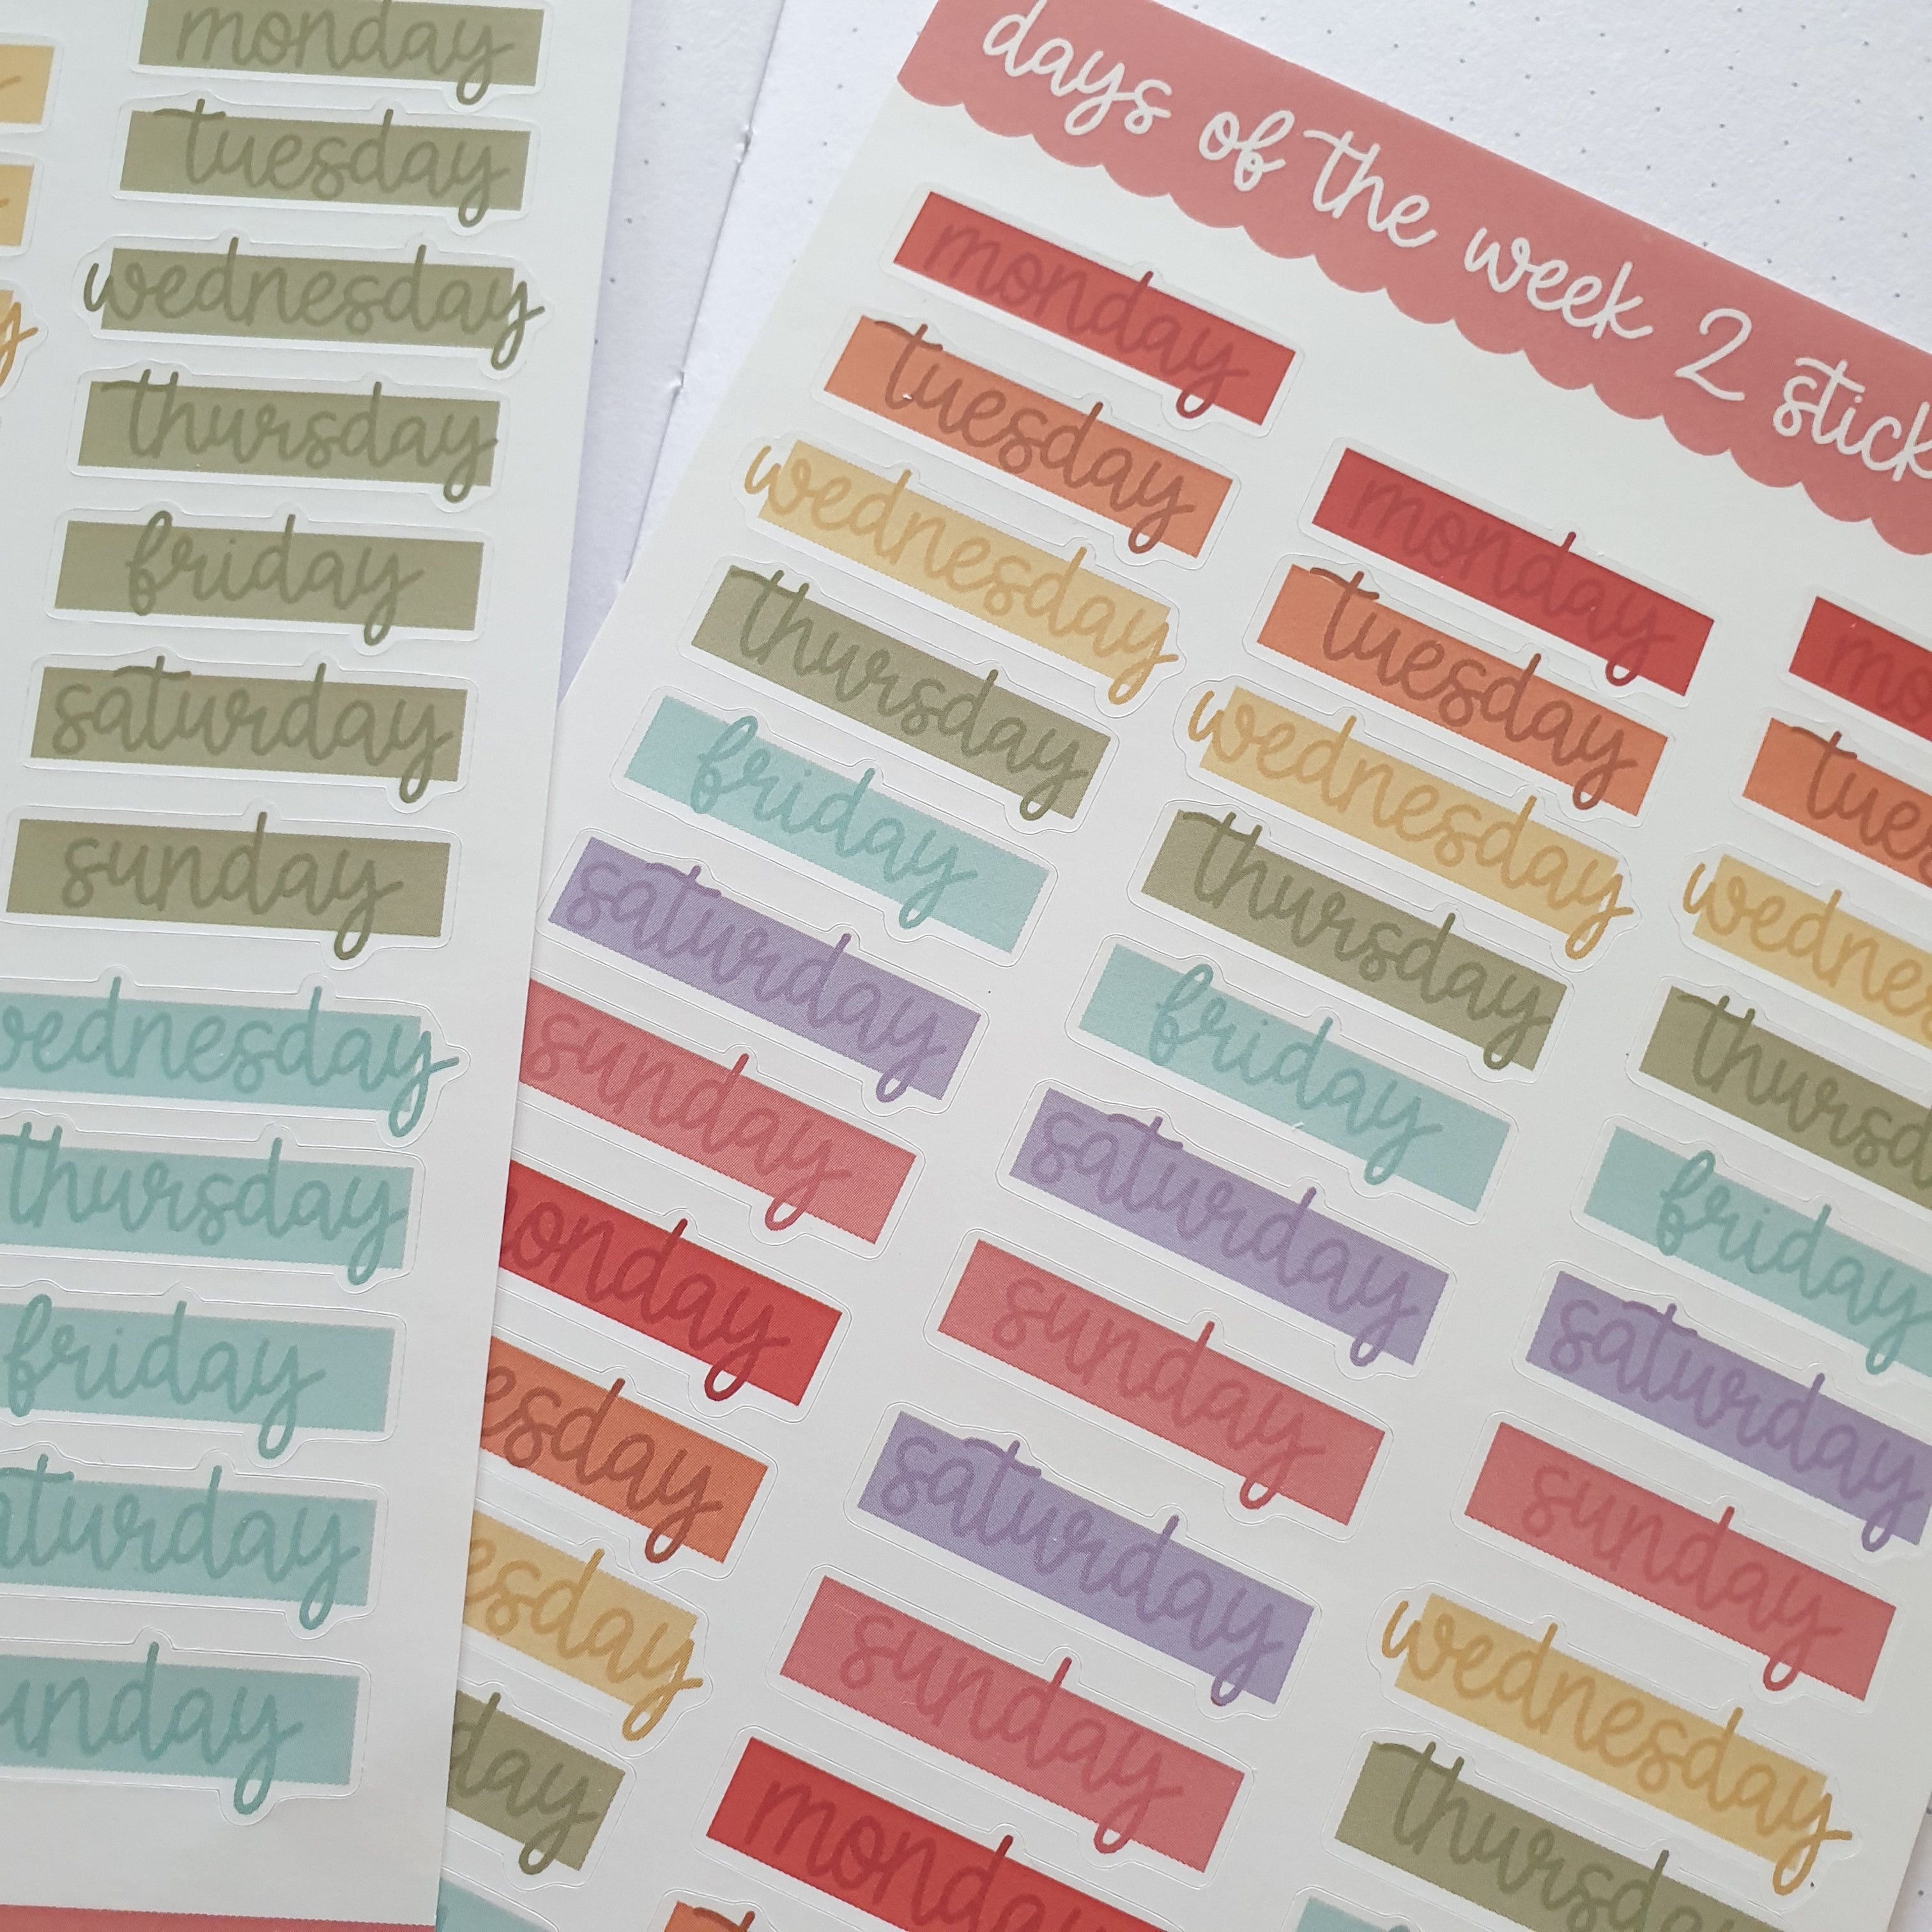 monday
tuesday
wednesday
thursday
friday
saturday
sunday
wednesday
thursday
friday
saturday
sunday
days of the week 2 stick
monday
tuesday
wednesday
thursday
friday
saturday
sunday
monday
esday
esday
day
monday
tuesday
wednesday
thursday
friday
saturday
sunday
saturday
sunday
monday
mo
tues
wednes
thursd
friday
saturday
sunday
wednesday
thursd